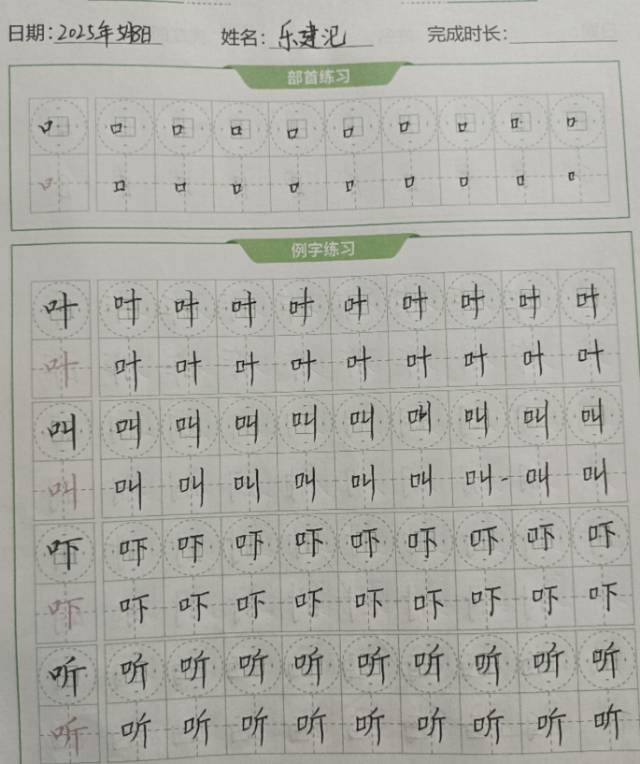 日期：2025年5月8日 姓名：乐建汜 完成时长：
部首练习
口 口 口 口 口 口 口 口 口 口
口 口 口 口 口 口 口 口 口 口
例字练习
叶 叶 叶 叶 叶 叶 叶 叶 叶 叶
叶 叶 叶 叶 叶 叶 叶 叶 叶 叶
叫 叫 叫 叫 叫 叫 叫 叫 叫 叫
叫 叫 叫 叫 叫 叫 叫 叫 叫 叫
吓 吓 吓 吓 吓 吓 吓 吓 吓 吓
吓 吓 吓 吓 吓 吓 吓 吓 吓 吓
听 听 听 听 听 听 听 听 听 听
听 听 听 听 听 听 听 听 听 听